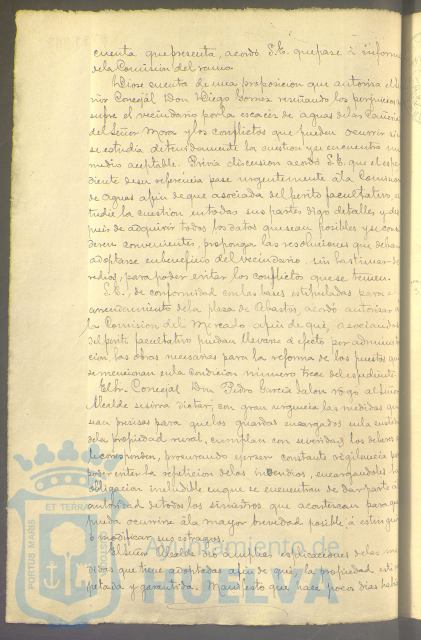 cuenta que presenta, acordó S.E. que pase á informe
de la Comisión del ramo.
Diose cuenta de una proposicion que autoriza el Se
ñor Concejal Don Diego Gomez reseñando los perjuicios
sufre el vecindario por la escacez de aguas de las Cañerias
del Señor Mora y los conflictos que pueden ocurrir si no
se estudia detenidamente la cuestion y se encuentra un
medio aceptable. Prévia discusion acordó S.E. que el espe
diente de su referencia pase urgentemente á la Comision
de Aguas afin de que asociada del perito facultativo, es
tudie la cuestion en todas sus partes digo detalles y des
pués de adquirir todos los datos que sean posibles y se con
sideren convenientes, proponga las resoluciones que deban
adoptarse en beneficio del vecindario, sin lastimar de
rechos, para poder evitar los conflictos que se temen.
S.E., de conformidad con las bases estipuladas para el
arrendamiento de la plaza de Abastos, acordó autorizar á
la Comision del Mercado afin de que, asociada
del perito facultativo puedan llevarse á efecto por administra
cion las obras necesarias para la reforma de los puestos que
se mencionan en la Condicion número trece del espediente.
El Sr. Concejal Don Pedro Garcia Jalon rogó al Señor
Alcalde se sirva dictar, con gran urgencia las medidas que
sean precisas para que los guardas encargados en la custodia
de la propiedad rural, cumplan con severidad los deberes que
le corresponden, procurando ejerzan constante vigilancia para
poder evitar la repeticion de los incendios, encargandoles la
obligacion ineludible en que se encuentran de dar parte á la
autoridad de todos los siniestros que acontezcan para que
pueda ocurrirse á la mayor brevedad posible á estinguir
ó modificar sus estragos.
El Señor Alcalde dió cumplidas esplicaciones de las me
didas que tiene adoptadas afin de que la propiedad esté res
petada y garantida. Manifestó que hace pocos dias habia
PORTUS MARIS
ET TERRAE
Ayuntamiento de
HUELVA